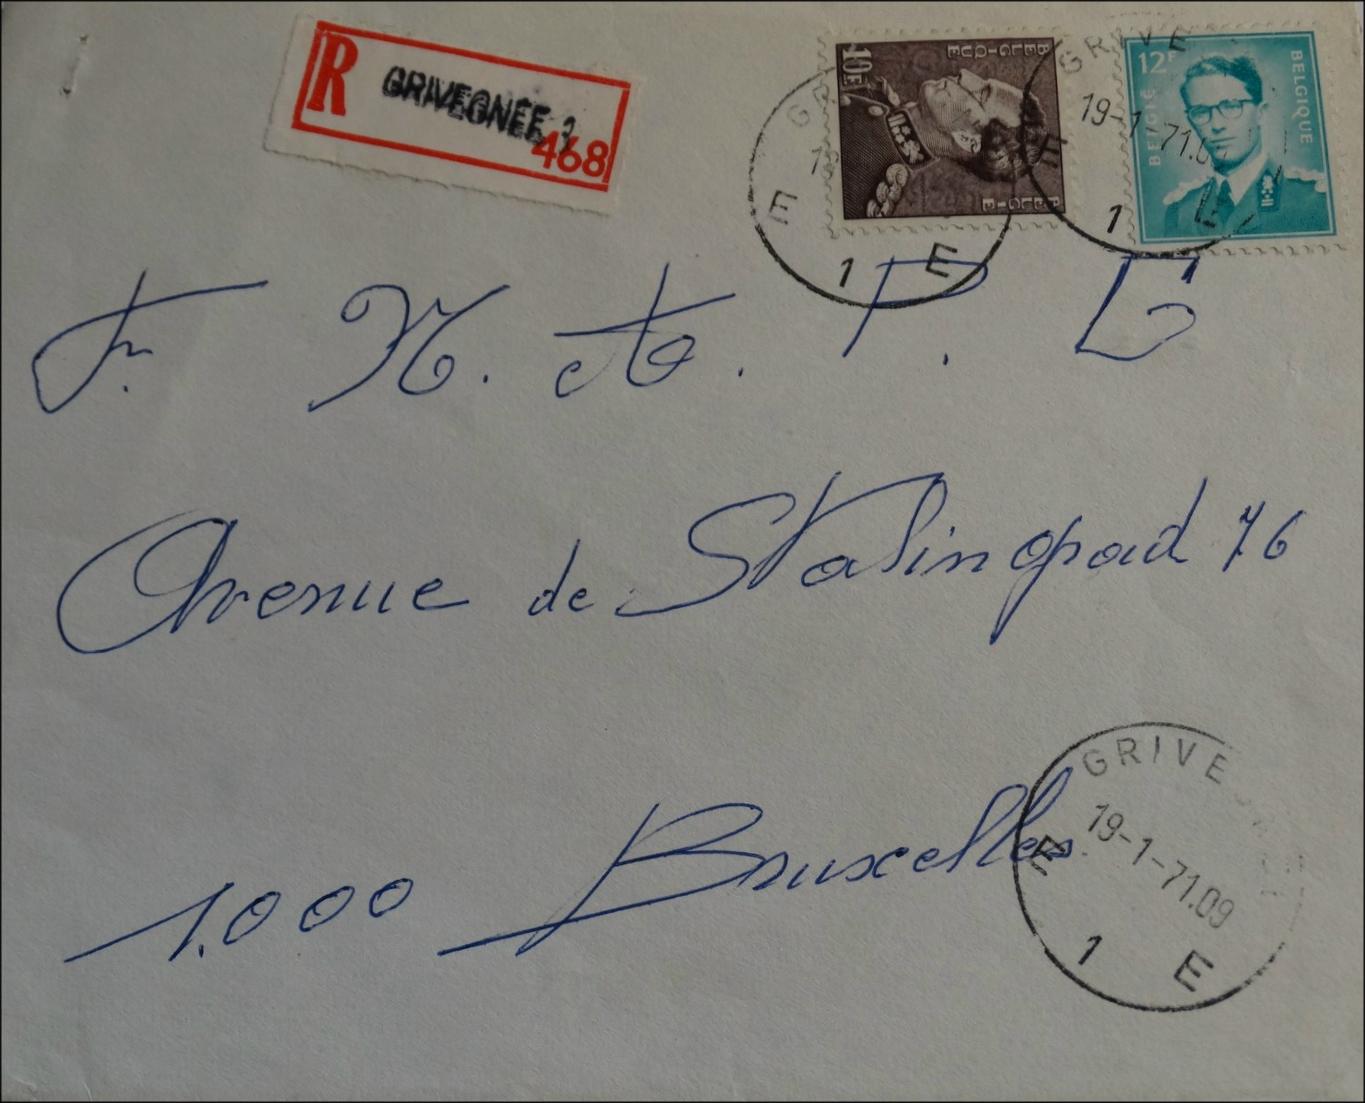 R GRIVEGNÉE 1
468
10F BELGIQUE BELGIE
12F BELGIË BELGIQUE
GRIVE
19-1-71.09
E 1 E
1
Avenue de Stalingrad 76
1.000 Bruxelles
GRIVE
19-1-71.09
E 1 E